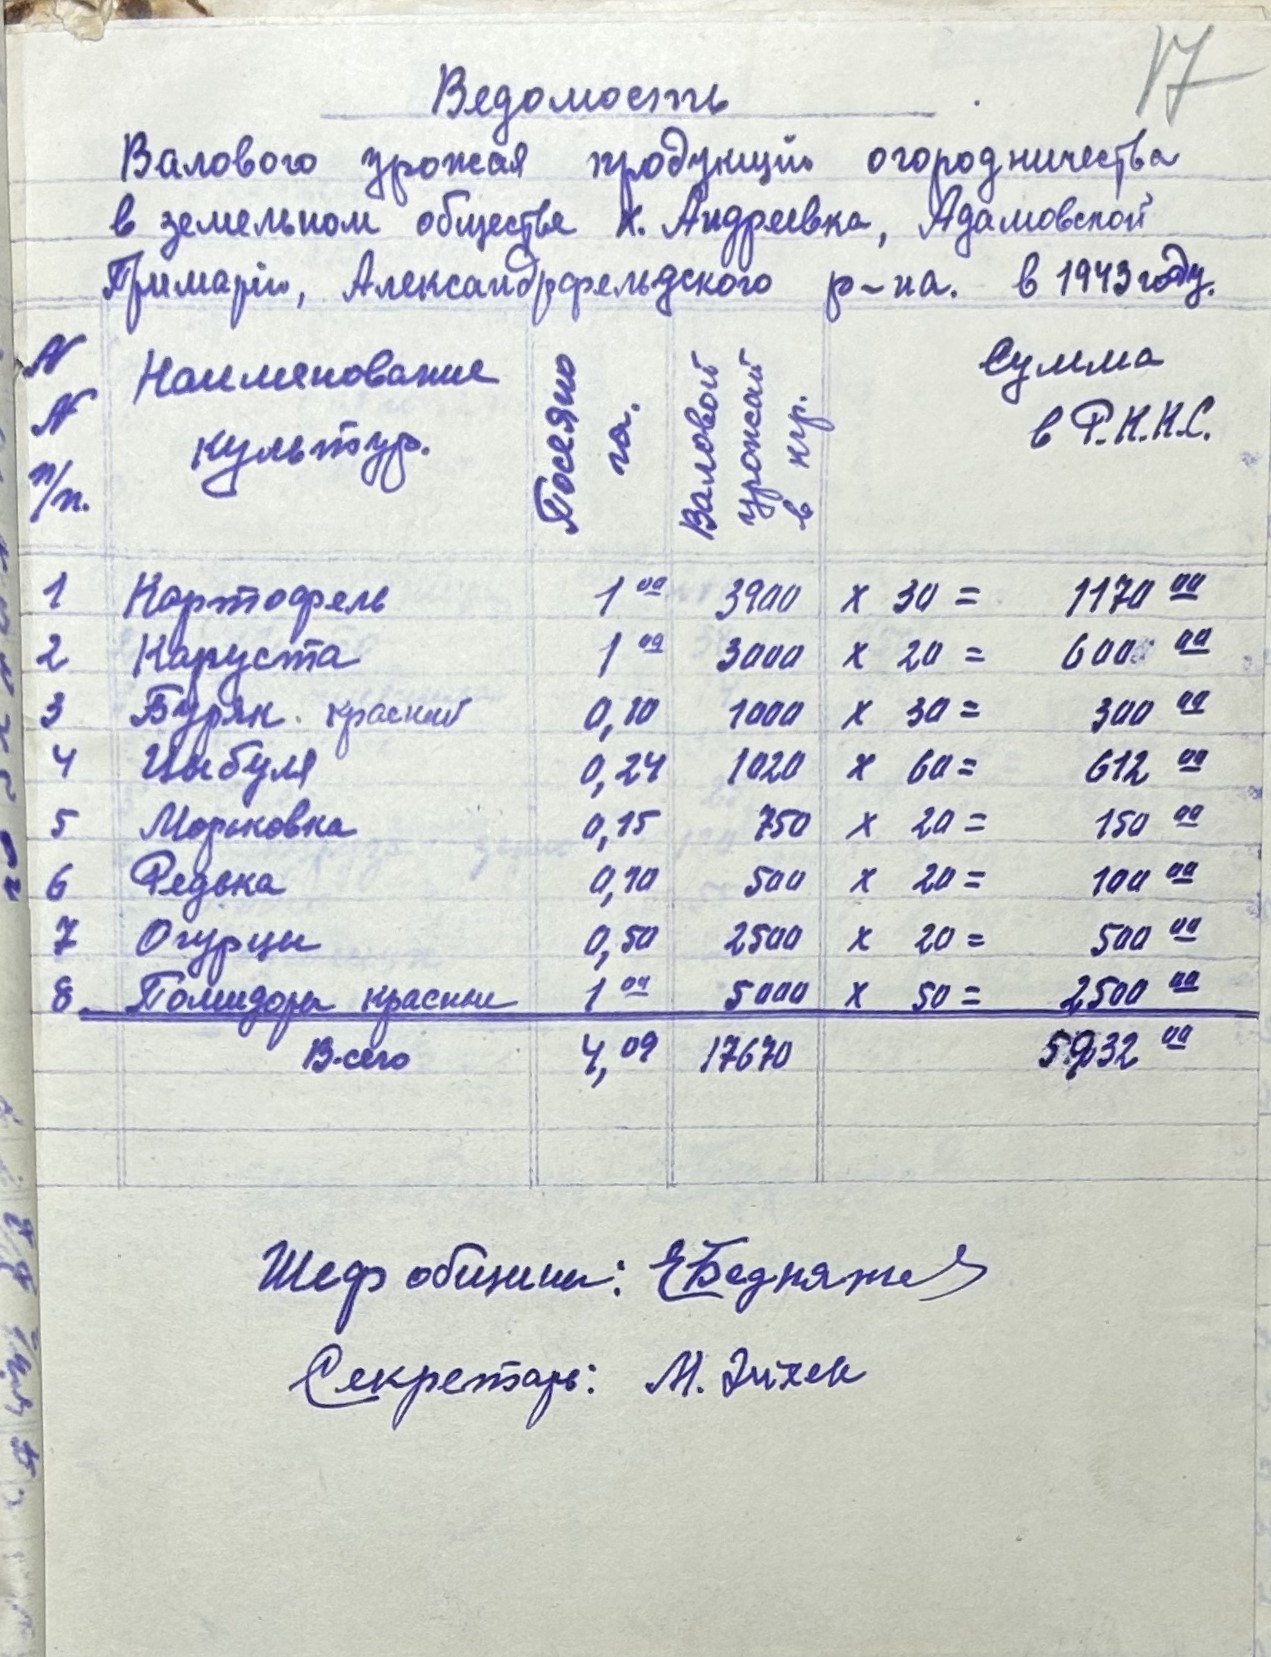 17
Ведомость
Валового урожая продукціи огородничества
в земельном обществе х. Андреевка, Адамовской
Примаріи, Александрфельдского р-на. в 1943 году.
N N п/п. Наименование культур. Посеяно га. Валовой урожай в кгр. Сумма в Р.К.К.С.
1 Картофель 1 00 3900 х 30 = 1170 00
2 Капуста 1 00 3000 х 20 = 600 00
3 Буряк красный 0,10 1000 х 30 = 300 00
4 Цыбуля 0,24 1020 х 60 = 612 00
5 Морковка 0,15 750 х 20 = 150 00
6 Редька 0,10 500 х 20 = 100 00
7 Огурцы 0,50 2500 х 20 = 500 00
8. Помидоры красные 1 00 5000 х 50 = 2500 00
Всего 4,09 17670 5932 00
Шеф общины:
Секретарь: М.